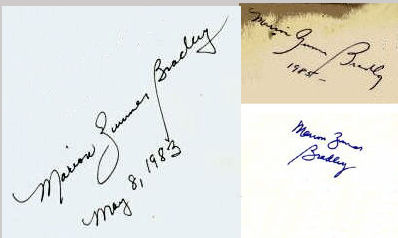 Marion Zimmer Bradley
May 8, 1983
Marion Zimmer Bradley
1985
Marion Zimmer
Bradley